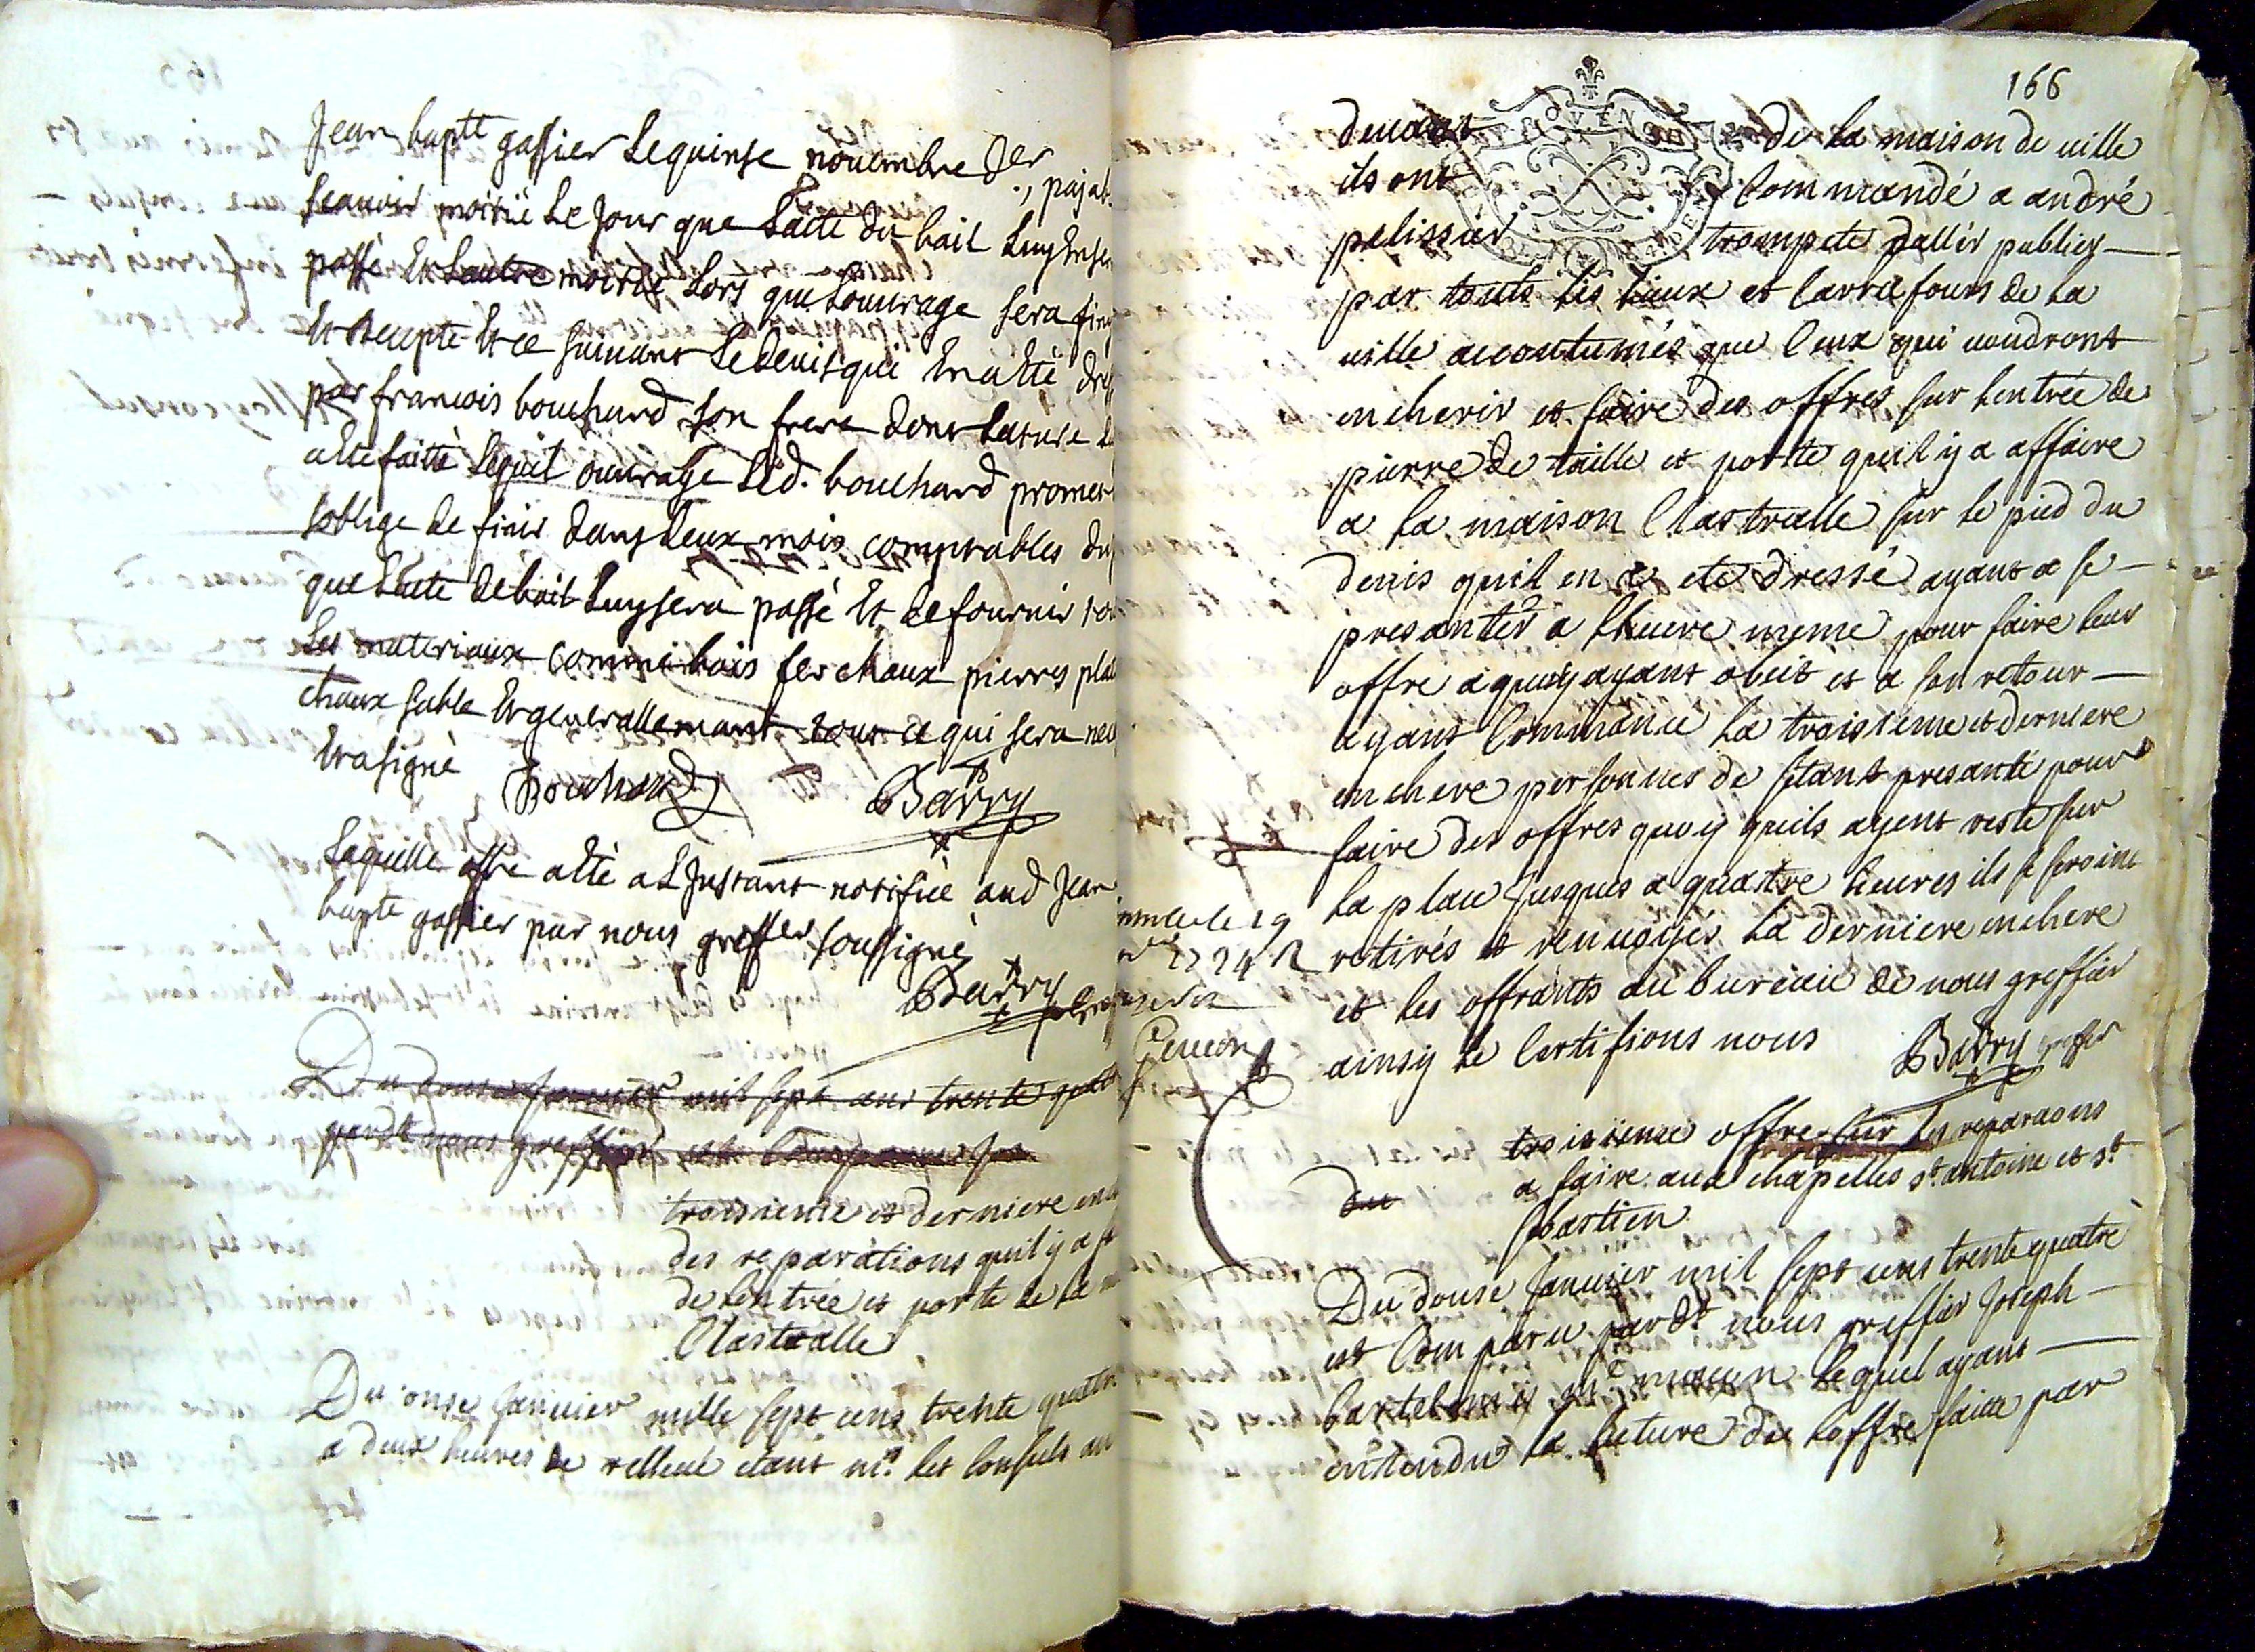 Jean bapte gassier Le quinse nouembre der, pajab
scauoir moitié Le Jour que Lacte du bail Luy En ser
passé Et Lautre moitié Lors que Louurage sera finy
Et Recupte Et ce suiuant Le deuis que En a été dres
par francois bouchard son frere dont Lecture
esté faitte Lequel ouurage Led. bouchard promet
soblige de finir dans deux mois comptables du
que Lacte de bail Luy sera passé Et de fournir tou
Les materiaux comme bois fer chaux pierres pla
chaux sable Et generallemant tout ce qui sera nec
Et a signé
Bouchard
Barry
Laquelle offre a été a L Jnstant notifiée aud Jean
bapte gassier par nous greffier soussigné
Barry
Du douse Januier mil sept cens trente quatr
pardt nous greffier
troisieme et derniere ench
des reparations quil y a
de lentrée et porte de la
Clastralle
Du onse januier mille sept cens trente quatre
a deux heures de relleué etant mrs les Consuls au
166
deuant de la maison de uille
ils ont Commandé a andré
pelissier trompete dallér publier
par touts les lieux et Carrefours de la
uille accoutumés que Ceux qui uoudront
encherir et faire des offres sur lentrée de
pierre de taille et porte quil y a affaire
a la maison Clastralle sur le pied du
deuis quil en a eté dressé ayant a se
presantér a lheure meme pour faire leur
offre a quoy ayant obeit et a son retour
ayant Commancé la troisieme et derniere
enchere personnes de setant presanté pour
faire des offres quoy quils ayent resté sur
la place jusques a quattre heures ils se seroint
retirés et renuoyés la derniere enchere
et les offrants au bureau de nous greffier
ainsy le Certifions nous
Barry greffier
troisieme offre sur les reparaons
a faire aux chapelles st. antoine et st
sebastien
du
Du douse Januier mil sept cens trente quatre
est Comparu pardt nous greffier Joseph
bartelemy me macon lequel ayant
entendu la lecture de loffre faitte par